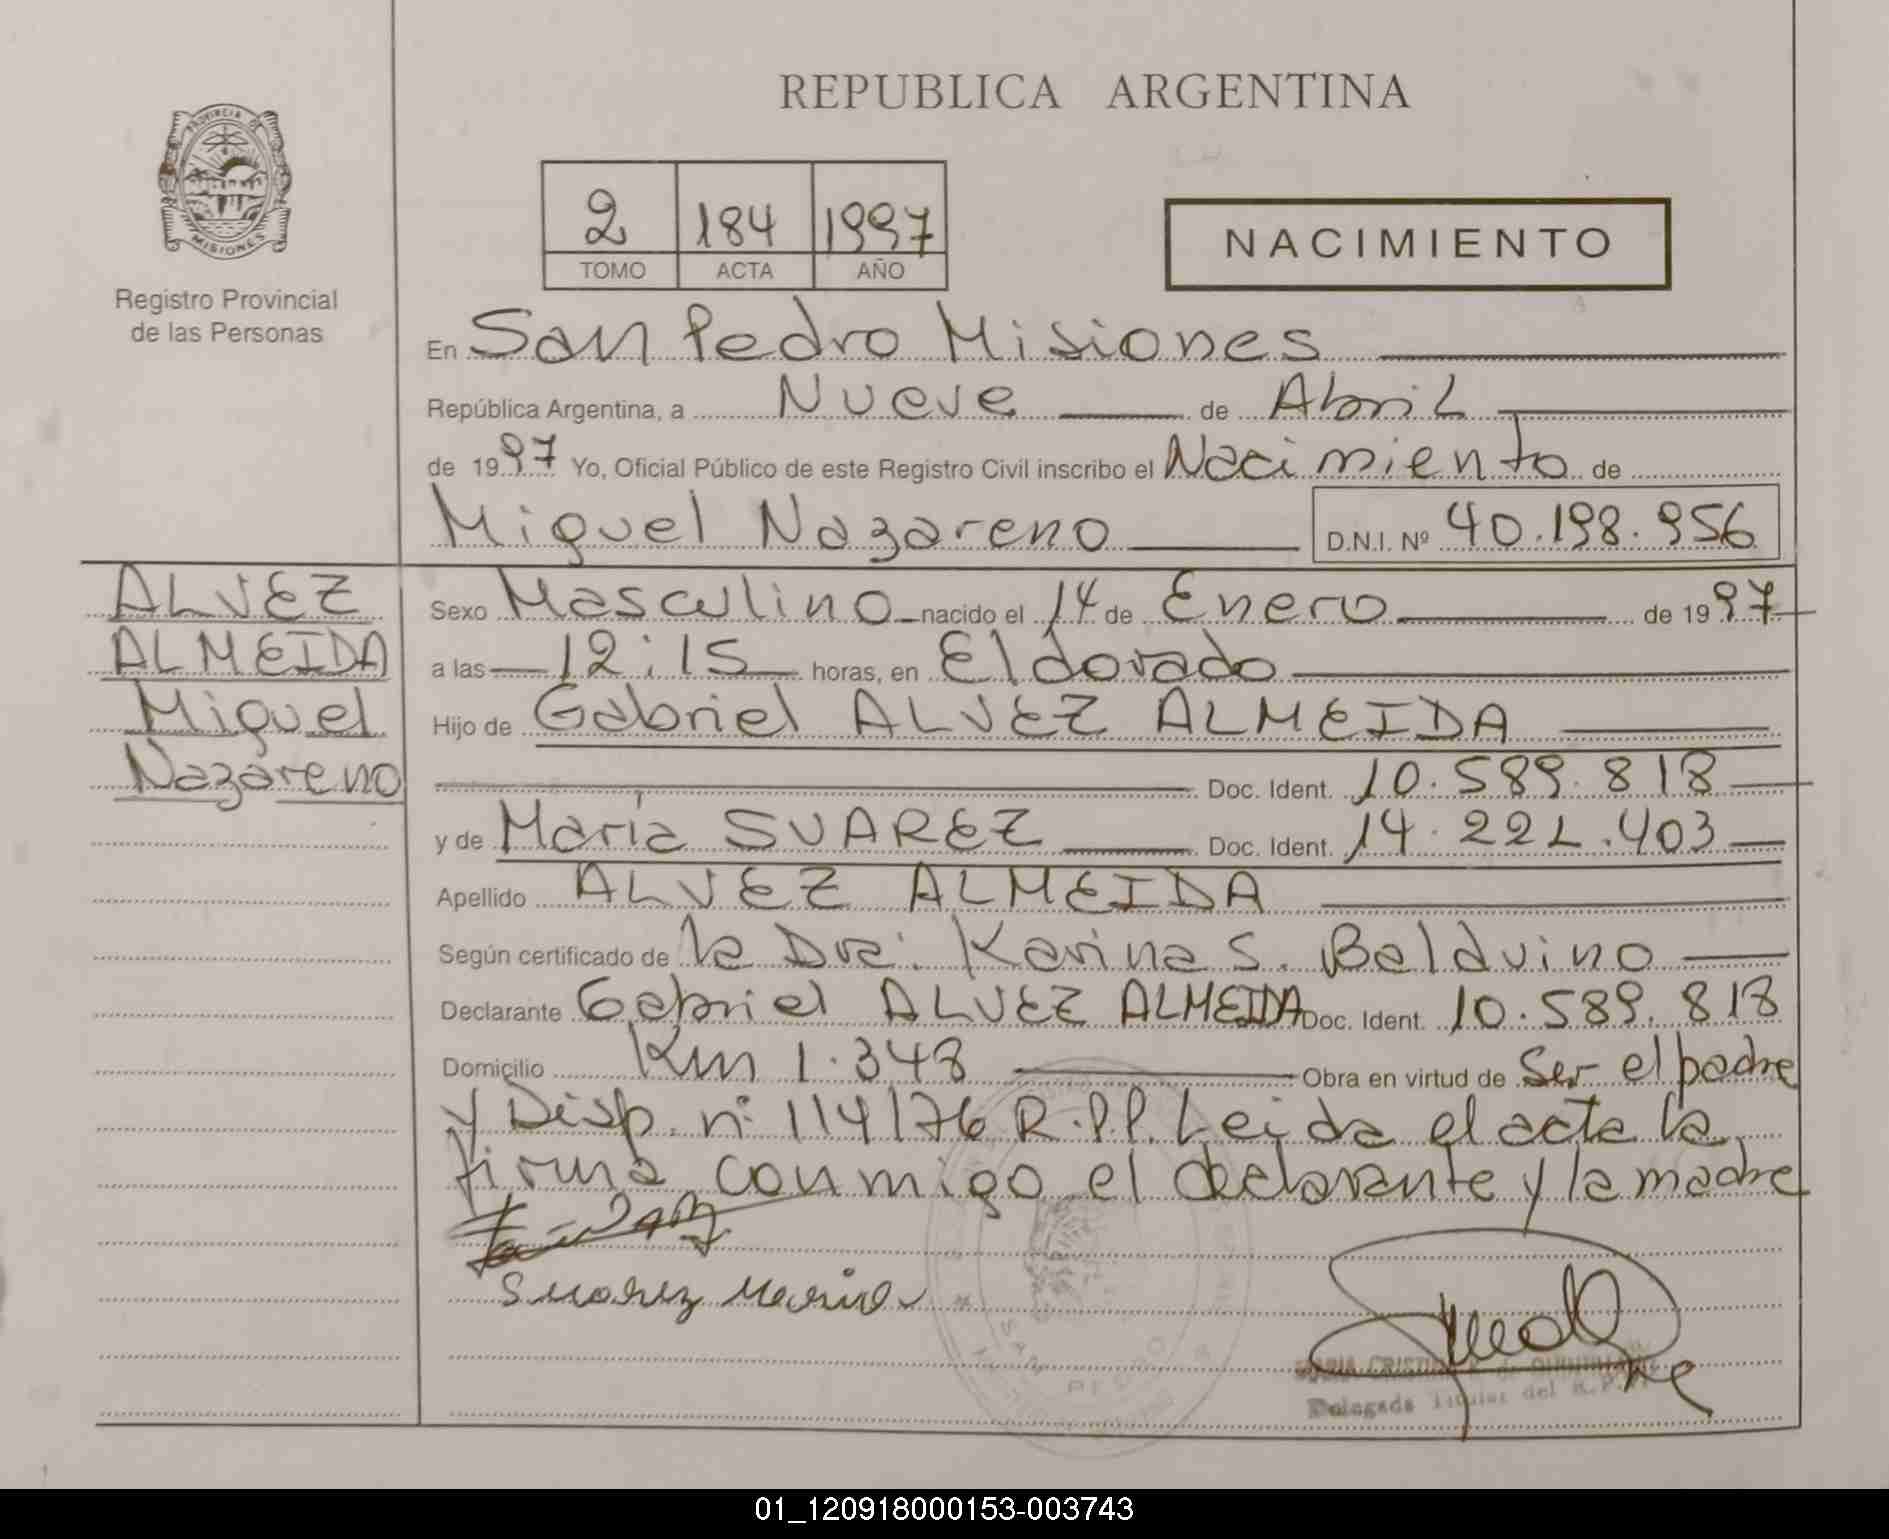 REPUBLICA ARGENTINA
PROVINCIA DE
MISIONES
Registro Provincial
de las Personas
2 184 1997
TOMO ACTA AÑO
NACIMIENTO
En San Pedro Misiones
República Argentina, a Nueve de Abril
de 1997 Yo, Oficial Público de este Registro Civil inscribo el Nacimiento de
Miguel Nazareno D.N.I. Nº 40.198.956
ALVEZ
ALMEIDA
Miguel
Nazareno
Sexo Masculino nacido el 14 de Enero de 1997
a las 12:15 horas, en Eldorado
Hijo de Gabriel ALVEZ ALMEIDA
Doc. Ident. 10.589.818
y de María SUAREZ Doc. Ident. 14.221.403
Apellido ALVEZ ALMEIDA
Según certificado de la Dra. Karina S. Balduino
Declarante Gabriel ALVEZ ALMEIDA Doc. Ident. 10.589.818
Domicilio Km 1.348 Obra en virtud de Ser el padre
y Disp. nº 114/76 R.P.P. Leida el acta la
firma conmigo el declarante y la madre
Suarez Maria
SAN PEDRO
MARIA CRISTINA de
Delegada Titular del R.P.P.
01_120918000153-003743